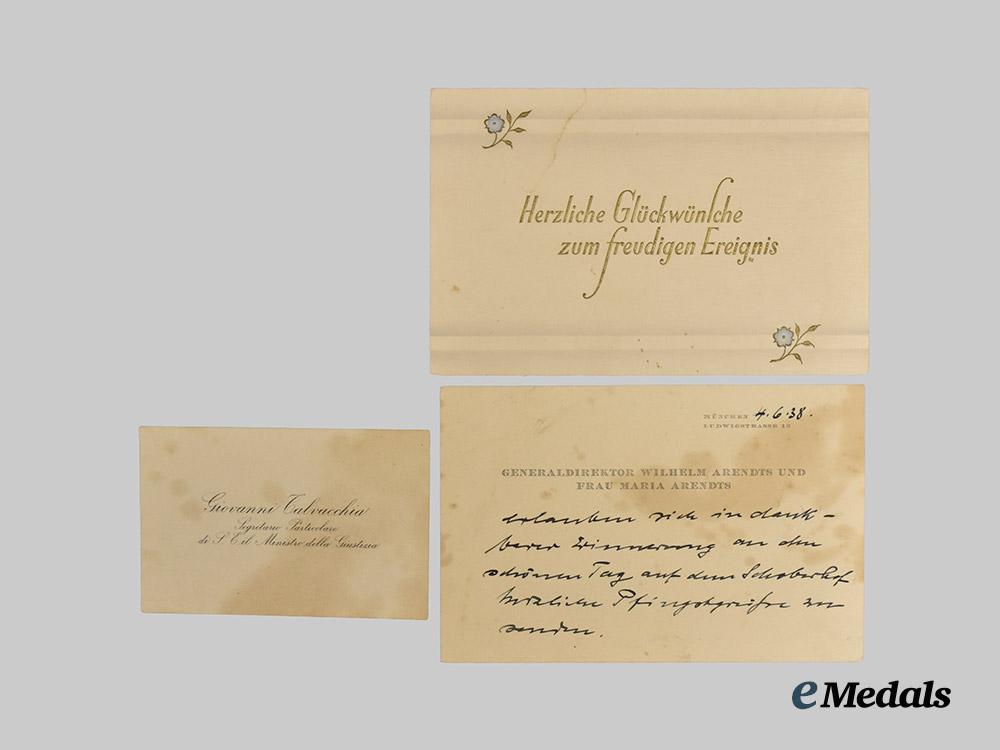 Herzliche Glückwünsche
zum freudigen Ereignis
MÜNCHEN 4.6.38.
LUDWIGSTRASSE 12
GENERALDIREKTOR WILHELM ARENDTS UND
FRAU MARIA ARENDTS
erlauben sich in dank-
barer Erinnerung an den
schönen Tag auf dem Schoberhof
herzliche Pfingstgrüße zu
senden.
Giovanni Talvacchia
Segretario Particolare
di S. E. il Ministro della Giustizia
eMedals